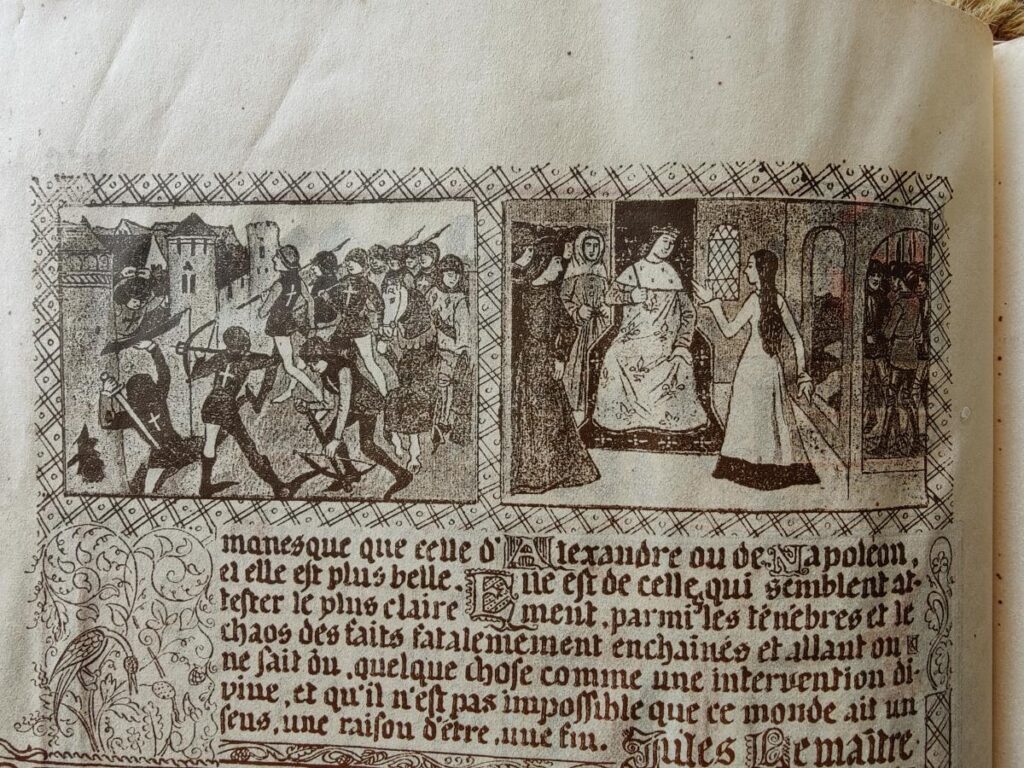 manesque que celle d'Alexandre ou de Napoleon,
et elle est plus belle. Elle est de celles qui semblent at-
tester le plus claire ment, parmi les ténèbres et le
chaos des faits fatalement enchaînés et allant on
ne sait où, quelque chose comme une intervention di-
vine, et qu'il n'est pas impossible que ce monde ait un
sens, une raison d'être, une fin. Jules Lemaître